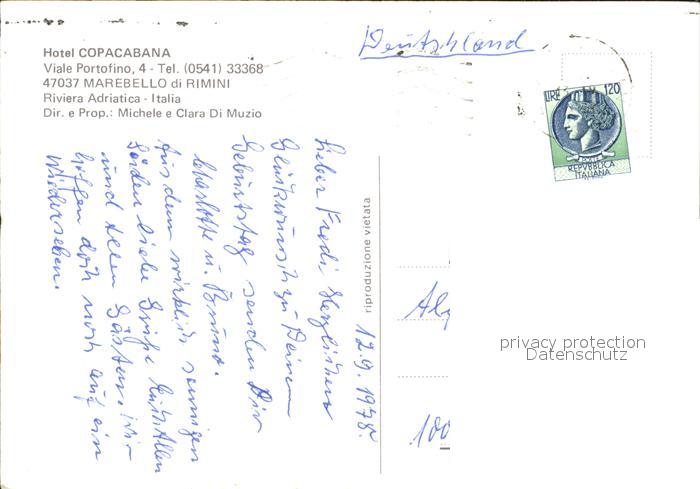 Hotel COPACABANA
Viale Portofino, 4 - Tel. (0541) 33368
47037 MAREBELLO di RIMINI
Riviera Adriatica - Italia
Dir. e Prop.: Michele e Clara Di Muzio
Deutschland.
LIRE 120
REPVBBLICA
ITALIANA
riproduzione vietata
12.9.1978.
Lieber Fredi Herzlichen
Glückwunsch zu Deinem
Geburtstag senden Dir
Charlotte u. Bruno.
Aus dem wirklich sonnigen
Süden liebe Grüße Euch Allen
und allen Gästen. Wir
hoffen doch noch auf ein
Wiedersehen.
100
privacy protection
Datenschutz